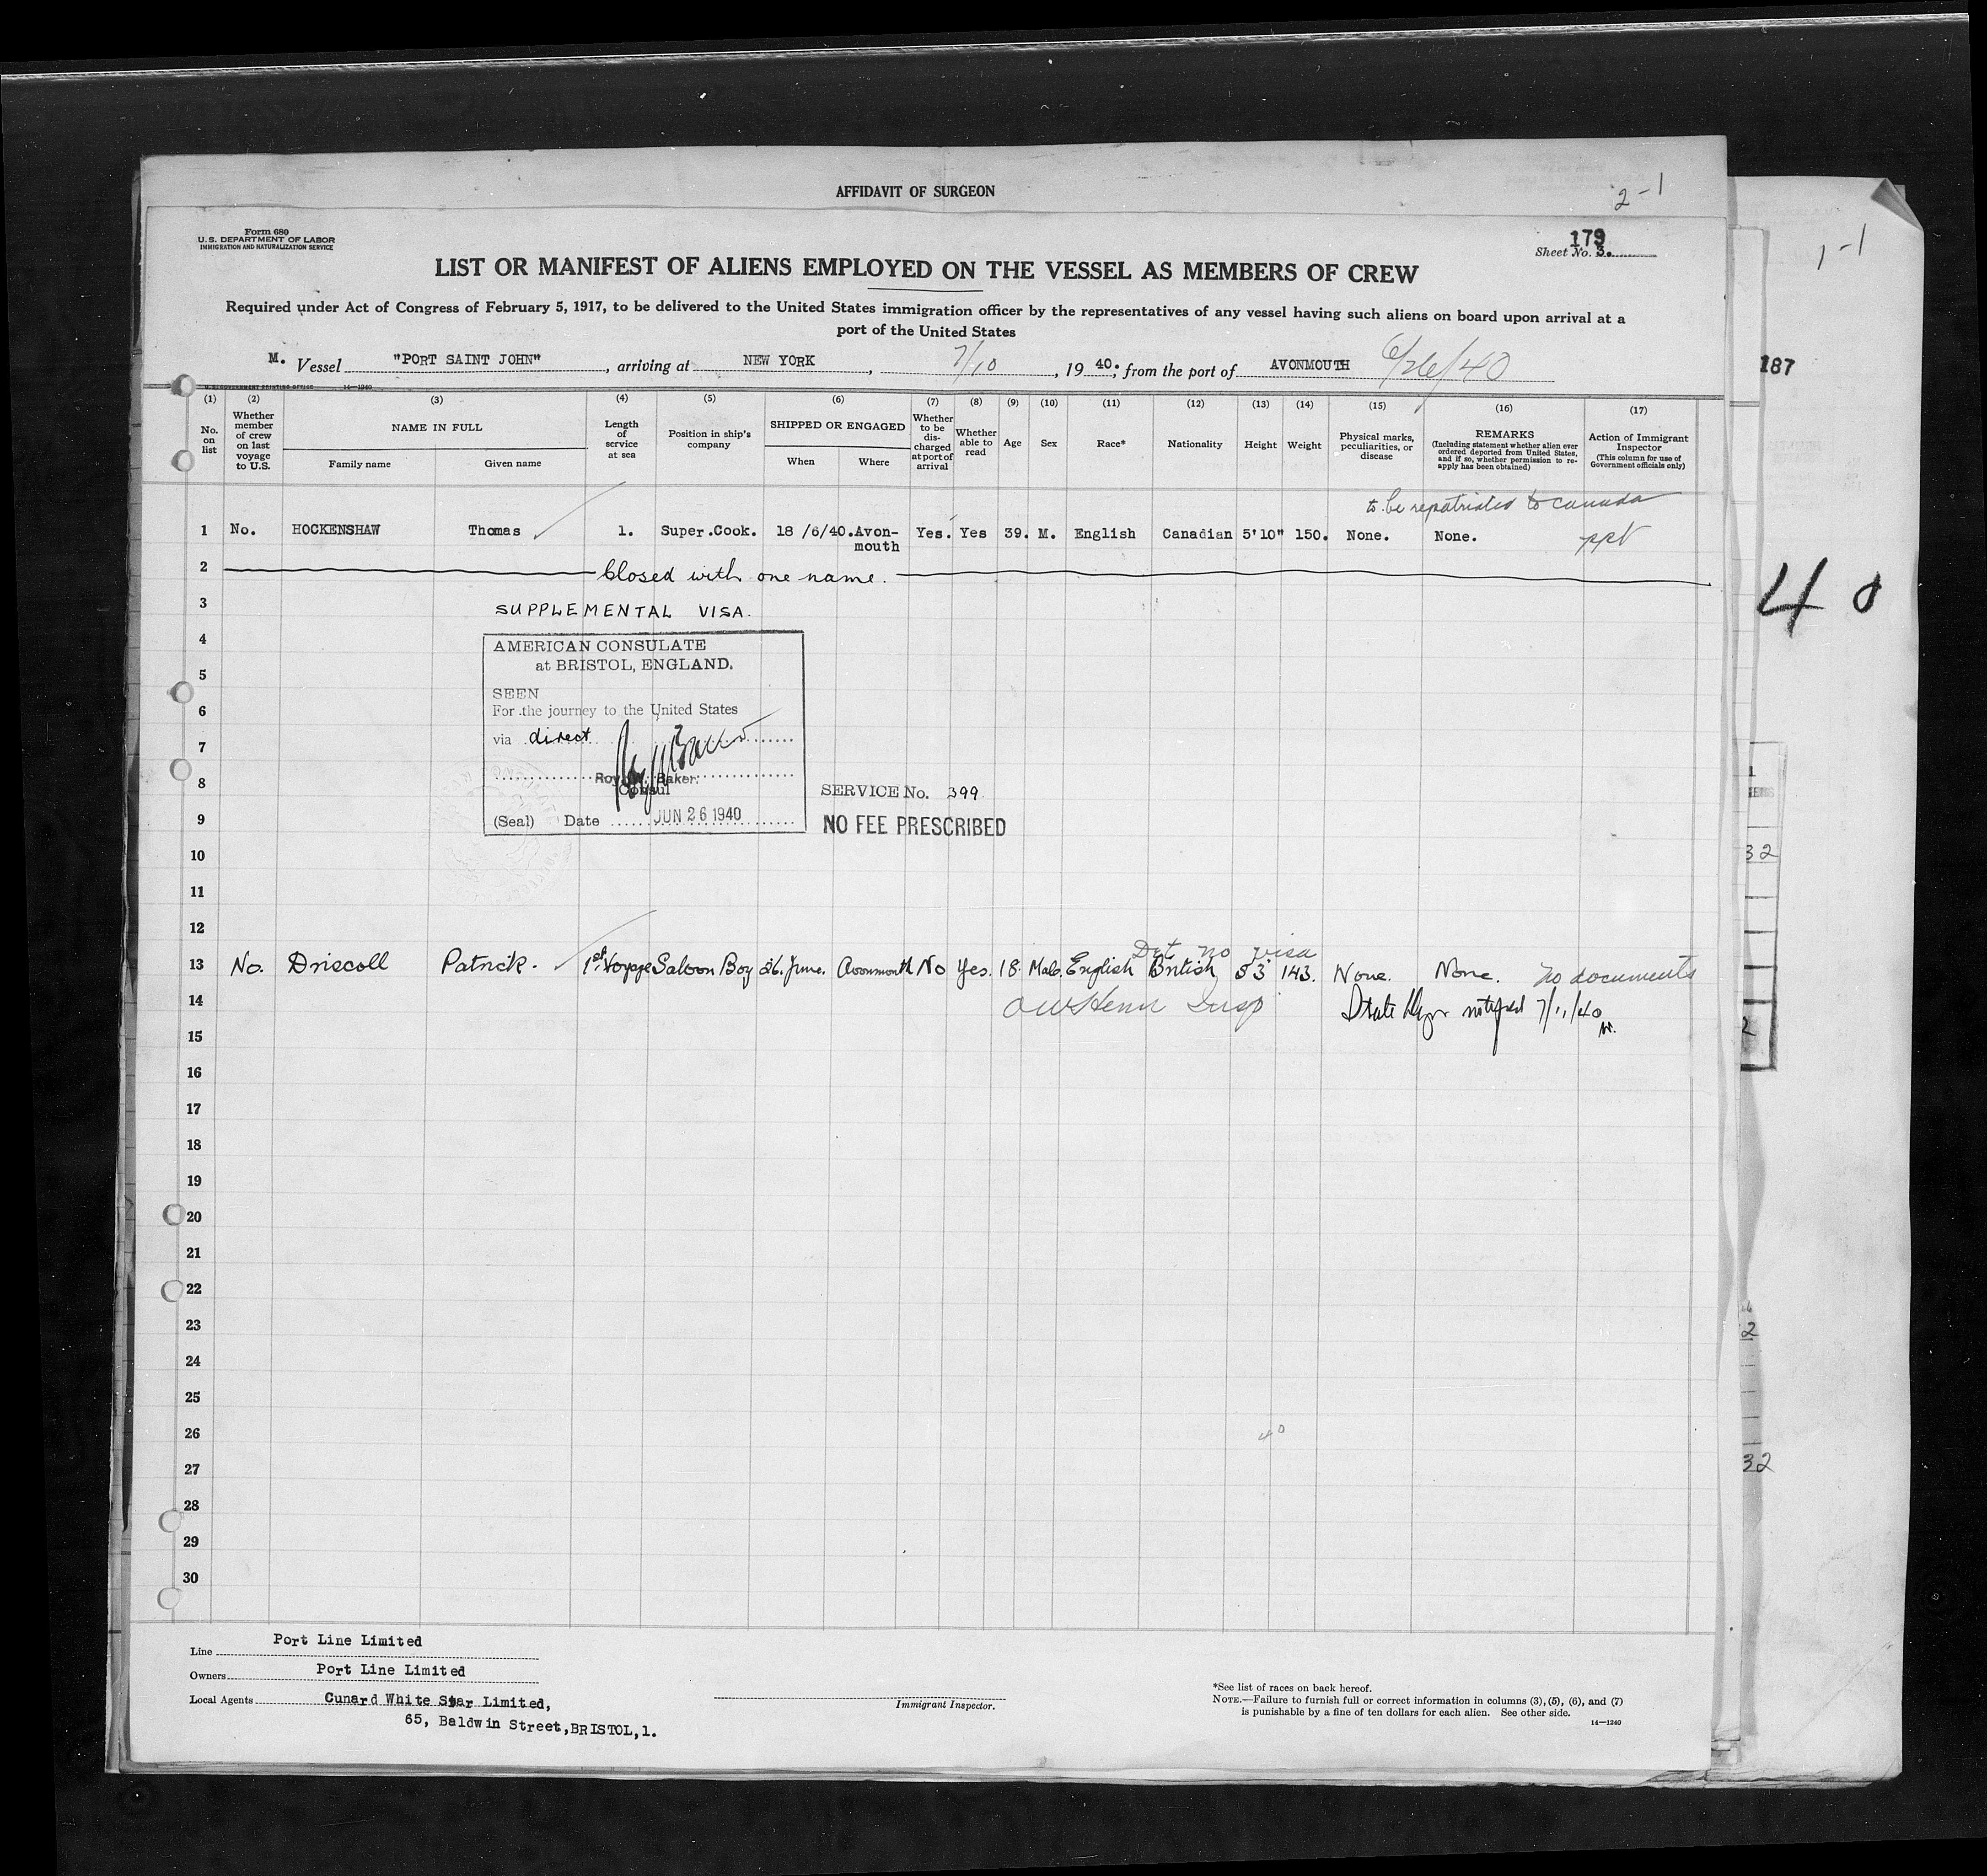 AFFIDAVIT OF SURGEON
2-1
1-1
Form 680
U.S. DEPARTMENT OF LABOR
IMMIGRATION AND NATURALIZATION SERVICE
179
Sheet No. 3.
LIST OR MANIFEST OF ALIENS EMPLOYED ON THE VESSEL AS MEMBERS OF CREW
Required under Act of Congress of February 5, 1917, to be delivered to the United States immigration officer by the representatives of any vessel having such aliens on board upon arrival at a
port of the United States
M. Vessel "PORT SAINT JOHN", arriving at NEW YORK, 7/10, 19 40; from the port of AVONMOUTH 6/26/40
187
14—1240
(1) (2) (3) (4) (5) (6) (7) (8) (9) (10) (11) (12) (13) (14) (15) (16) (17)
No. on list
Whether member of crew on last voyage to U.S.
NAME IN FULL
Family name Given name
Length of service at sea
Position in ship's company
SHIPPED OR ENGAGED
When Where
Whether to be discharged at port of arrival
Whether able to read
Age
Sex
Race*
Nationality
Height
Weight
Physical marks, peculiarities, or disease
REMARKS
(Including statement whether alien ever ordered deported from United States, and if so, whether permission to re-apply has been obtained)
Action of Immigrant Inspector
(This column for use of Government officials only)
to be repatriated to Canada
1 No. HOCKENSHAW Thomas 1. Super.Cook. 18 /6/40. Avon-mouth Yes. Yes 39. M. English Canadian 5'10" 150. None. None. ppt
2 Closed with one name.
3 SUPPLEMENTAL VISA.
4
AMERICAN CONSULATE
at BRISTOL, ENGLAND.
5
SEEN
6
For the journey to the United States
7
via direct
8
Roy W. Baker.
Consul
SERVICE No. 399
9
(Seal) Date JUN 26 1940
NO FEE PRESCRIBED
40
10
11
12
Det no visa
13 No. Driscoll Patrick. 1st Voyage Saloon Boy 26. June. Avonmouth No Yes. 18. Male. English British 5 3 143. None. None. no documents
14 Insp State notified 7/11/40
15
16
17
18
19
20
21
22
23
24
25
26 40
27
28
29
30
32
2
2
32
Line Port Line Limited
Owners Port Line Limited
Local Agents Cunard White Star Limited,
65, Baldwin Street, BRISTOL, 1.
Immigrant Inspector.
*See list of races on back hereof.
NOTE.—Failure to furnish full or correct information in columns (3), (5), (6), and (7)
is punishable by a fine of ten dollars for each alien. See other side.
14—1240